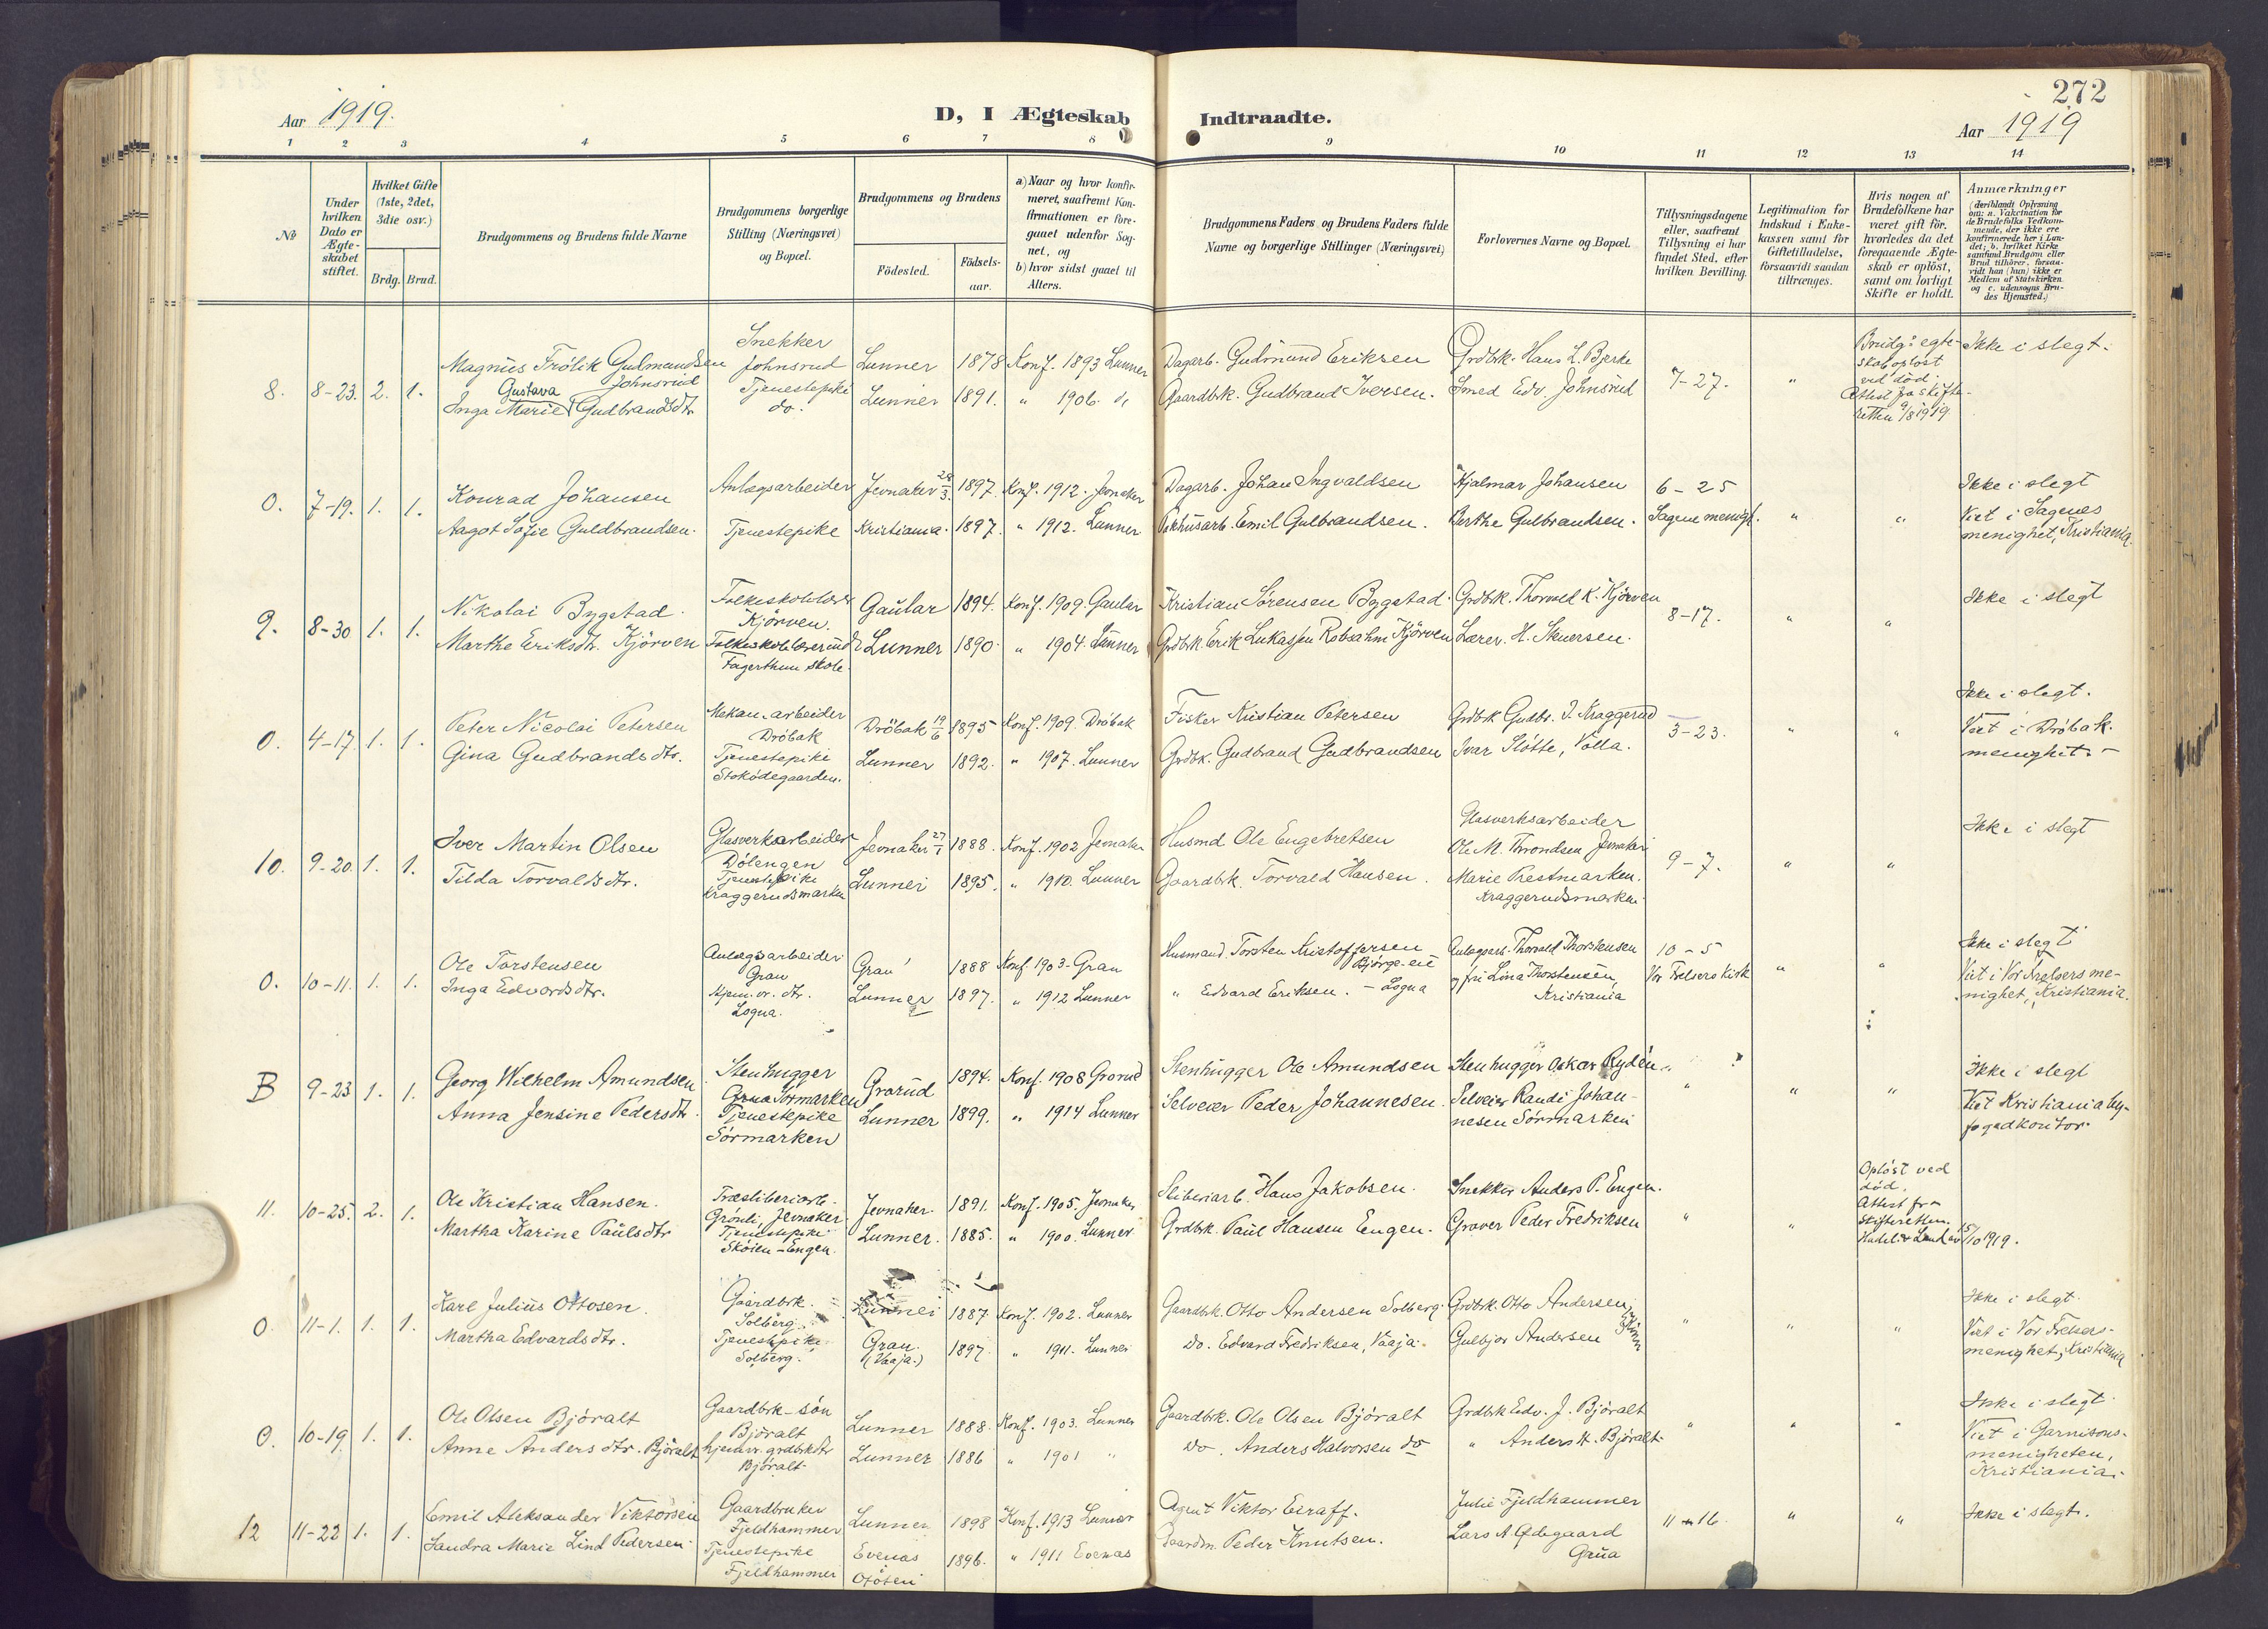 272
Aar 1919.
D, I Ægteskab Indtraadte.
Aar 1919
1 2 3 4 5 6 7 8 9 10 11 12 13 14
№
Under hvilken Dato er Ægteskabet stiftet.
Hvilket Gifte (1ste, 2det, 3die osv.)
Brdg. Brud.
Brudgommens og Brudens fulde Navne
Brudgommens borgerlige Stilling (Næringsvei) og Bopæl.
Brudgommens og Brudens
Födested.
Födsels-aar.
a) Naar og hvor konfir-
meret, saafremt Kon-
firmationen er fore-
gaaet udenfor Sog-
net, og
b) hvor sidst gaaet til
Alters.
Brudgommens Faders og Brudens Faders fulde
Navne og borgerlige Stillinger (Næringsvei)
Forlovernes Navne og Bopæl.
Tillysningsdagene
eller, saafremt
Tillysning ei har
fundet Sted, efter
hvilken Bevilling.
Legitimation for
Indskud i Enke-
kassen samt for
Giftetilladelse,
forsaavidt saadan
tiltrænges.
Hvis nogen af
Brudefolkene har
været gift før,
hvorledes da det
foregaaende Ægte-
skab er opløst,
samt om lovligt
Skifte er holdt.
Anmærkninger
(deriblandt Oplysning
om: a. Vakcination for
de Brudefolks Vedkom-
mende, der ikke ere
konfirmerede her i Lan-
det; b. hvilket Kirke
samfund Brudgom eller
Brud tilhører, forsaa-
vidt han (hun) ikke er
Medlem af Statskirken
og c. udensogns Bru-
des Hjemsted.)
8. 8-23. 2. 1.
Magnus Frölik Gudmundsen
Johnsrud
Gustava
Inga Marie Gudbrandsdtr.
Snekker
Johnsrud
Tjenestepike
do.
Lunner 1878 Konf. 1893 Lunner
Lunner 1891. " 1906. do
Dagarb. Gudmund Eriksen
Gaardbrk. Gudbrand Iversen.
Grdbrk. Hans L. Bjerke
Smed Edv. Johnsrud
7-27. "
Brudg.s egte-
skab opløst
ved død.
Attest fra skifte-
retten 9/8 1919
Ikke i slegt.
0. 7-19. 1. 1.
Konrad Johansen
Aagot Sofie Guldbrandsen.
Anlægsarbeider
Tjenestepike
Jevnaker 28/3. 1897. Konf. 1912. Jevnaker
Kristiania. 1897. " 1912. Lunner
Dagarb. Johan Ingvaldsen
Emil Gulbrandsen.
Hjalmar Johansen
Berthe Gulbrandsen.
6-25
Sagene menigh. " "
Ikke i slegt
Viet i Sagenes
menighet, Kristiania.
9. 8-30 1. 1.
Nikolai Bygstad
Marthe Eriksdtr. Kjörven
Folkeskolelærer
Kjörven.
Folkeskolelærerinde
Fagerthun skole.
Gaular 1894. Konf. 1909. Gaular
Lunner 1890. " 1904. Lunner
Kristian Sörensen Bygstad.
Grdbrk. Erik Lukassen Robsahm Kjörven
Grdbrk. Thorvald K. Kjörven
Lærer. H. Stenersen.
8-17. " "
Ikke i slegt
0. 4-17. 1. 1.
Peter Nicolai Petersen
Gina Gudbrandsdtr.
Mekan. arbeider
Dröbak
Tjenestepike
Stoködegaarden.
Dröbak 19/6 1895 Konf. 1909. Dröbak
Lunner 1892. " 1907. Lunner
Fisker Kristian Petersen
Grdbk. Gudbrand Gudbrandsen
Grdbrk Gudbr. I. Kraggerud
Ivar Slötte, Volla.
3-23. " "
Ikke i slegt.
Viet i Dröbak.
menighet.-
10. 9-20. 1. 1.
Iver Martin Olsen
Tilda Torvaldsdtr.
Glasverksarbeider
Dölengen
Tjenestepike
Kraggerudsmarken
Jevnaker 27/1 1888. Konf. 1902 Jevnaker
Lunner 1895. " 1910. Lunner
Husmd Ole Engebretsen
Gaardbk. Torvald Hansen.
Glasverksarbeider
Ole M. Throndsen Jevnaker
Marie Prestmarken.
Kraggerudsmarken.
9-7. " "
Ikke i slegt
0. 10-11. 1. 1.
Ole Torstensen
Inga Edvardsdtr.
Anlægsarbeider
Gran
Hjem.v. dtr.
Logna.
Gran 1888 Konf. 1903. Gran
Lunner 1897. " 1912 Lunner
Husmand. Torsten Kristoffersen
Bjørge-eie
" Edvard Eriksen. - Logna
Anlægsarb. Thorvald Thorstensen
og fru Lina Thorstensen,
Kristiania
10-5
Vor Frelsers kirk " "
Ikke i slegt
Viet i Vor Frelsers me-
nighet, Kristiania.
B 9-23 1. 1.
Georg Wilhelm Amundsen
Anna Jensine Pedersdtr.
Stenhugger
Grua Sörmarken
Tjenestepike
Sörmarken
Grorud 1894. Konf. 1908 Grorud
Lunner 1899. " 1914 Lunner
Stenhugger Ole Amundsen
Selveier Peder Johannesen
Stenhugger Oskar Rydén
Selveier Randi Johan-
nesen Sörmarken
" ?
" " "
Ikke i slegt
Viet Kristiania by-
fogadkontor.
11. 10-25. 2. 1.
Ole Kristian Hansen.
Martha Karine Paulsdtr
Træsliberiarb.
Grönli, Jevnaker
Tjenestepike
Skóien - Engen.
Jevnaker. 1891. Konf. 1905. Jevnaker
Lunner. 1885. " 1900. Lunner
Sliberiarb. Hans Jakobsen.
Grdbrk. Paul Hansen Engen.
Snekker Anders P. Engen.
Graver Peder Fredriksen
" "
Opløst ved
död.
Attest fra
Skifteretten
Hadel. & Land av 15/10 1919.
0. 11-1. 1. 1.
Karl Julius Ottosen.
Martha Edvardsdtr.
Gaardbrk.
Solberg.
Tjenestepike
Solberg.
Lunner 1887. Konf. 1902. Lunner
Gran.
(Vaaja.) 1897. " 1911. Lunner
Gaardbrk. Otto Andersen Solberg.
Do. Edvard Fredriksen, Vaaja.
Grdbrk. Otto Andersen,
Gulbjør Andersen
" " "
Ikke i slegt.
Viet i Vor Frelsers-
menighet, Kristiania
0. 10-19 1. 1.
Ole Olsen Björalt
Anne Andersdtr. Björalt
Gaardbrk-sön
Björalt
hjemv. grdbrkdtr
Björalt.
Lunner 1888. Konf. 1903. Lunner
Lunner 1886 " 1901 "
Gaardbrk. Ole Olsen Björalt
do. Anders Halvorsen do
Grdbrk Edv. J. Björalt
" Anders H. Björalt.
" " "
Ikke i slegt.
Viet i Garnisons-
menigheten,
Kristiania.
12 11-22 1. 1.
Emil Aleksander Viktorsen
Sandra Marie Lind Pedersen
Gaardbruker
Fjeldhammer
Tjenestepike
Fjeldhammer
Lunner 1898 Konf. 1913 Lunner
Evenæs
Ofoten 1896. " 1911 Evenæs
Agent Viktor Eeraff.
Gaardm. Peder Knutsen.
Julie Fjeldhammer
Lars A. Ødegaard
Grua
11-16. " "
Ikke i slegt.